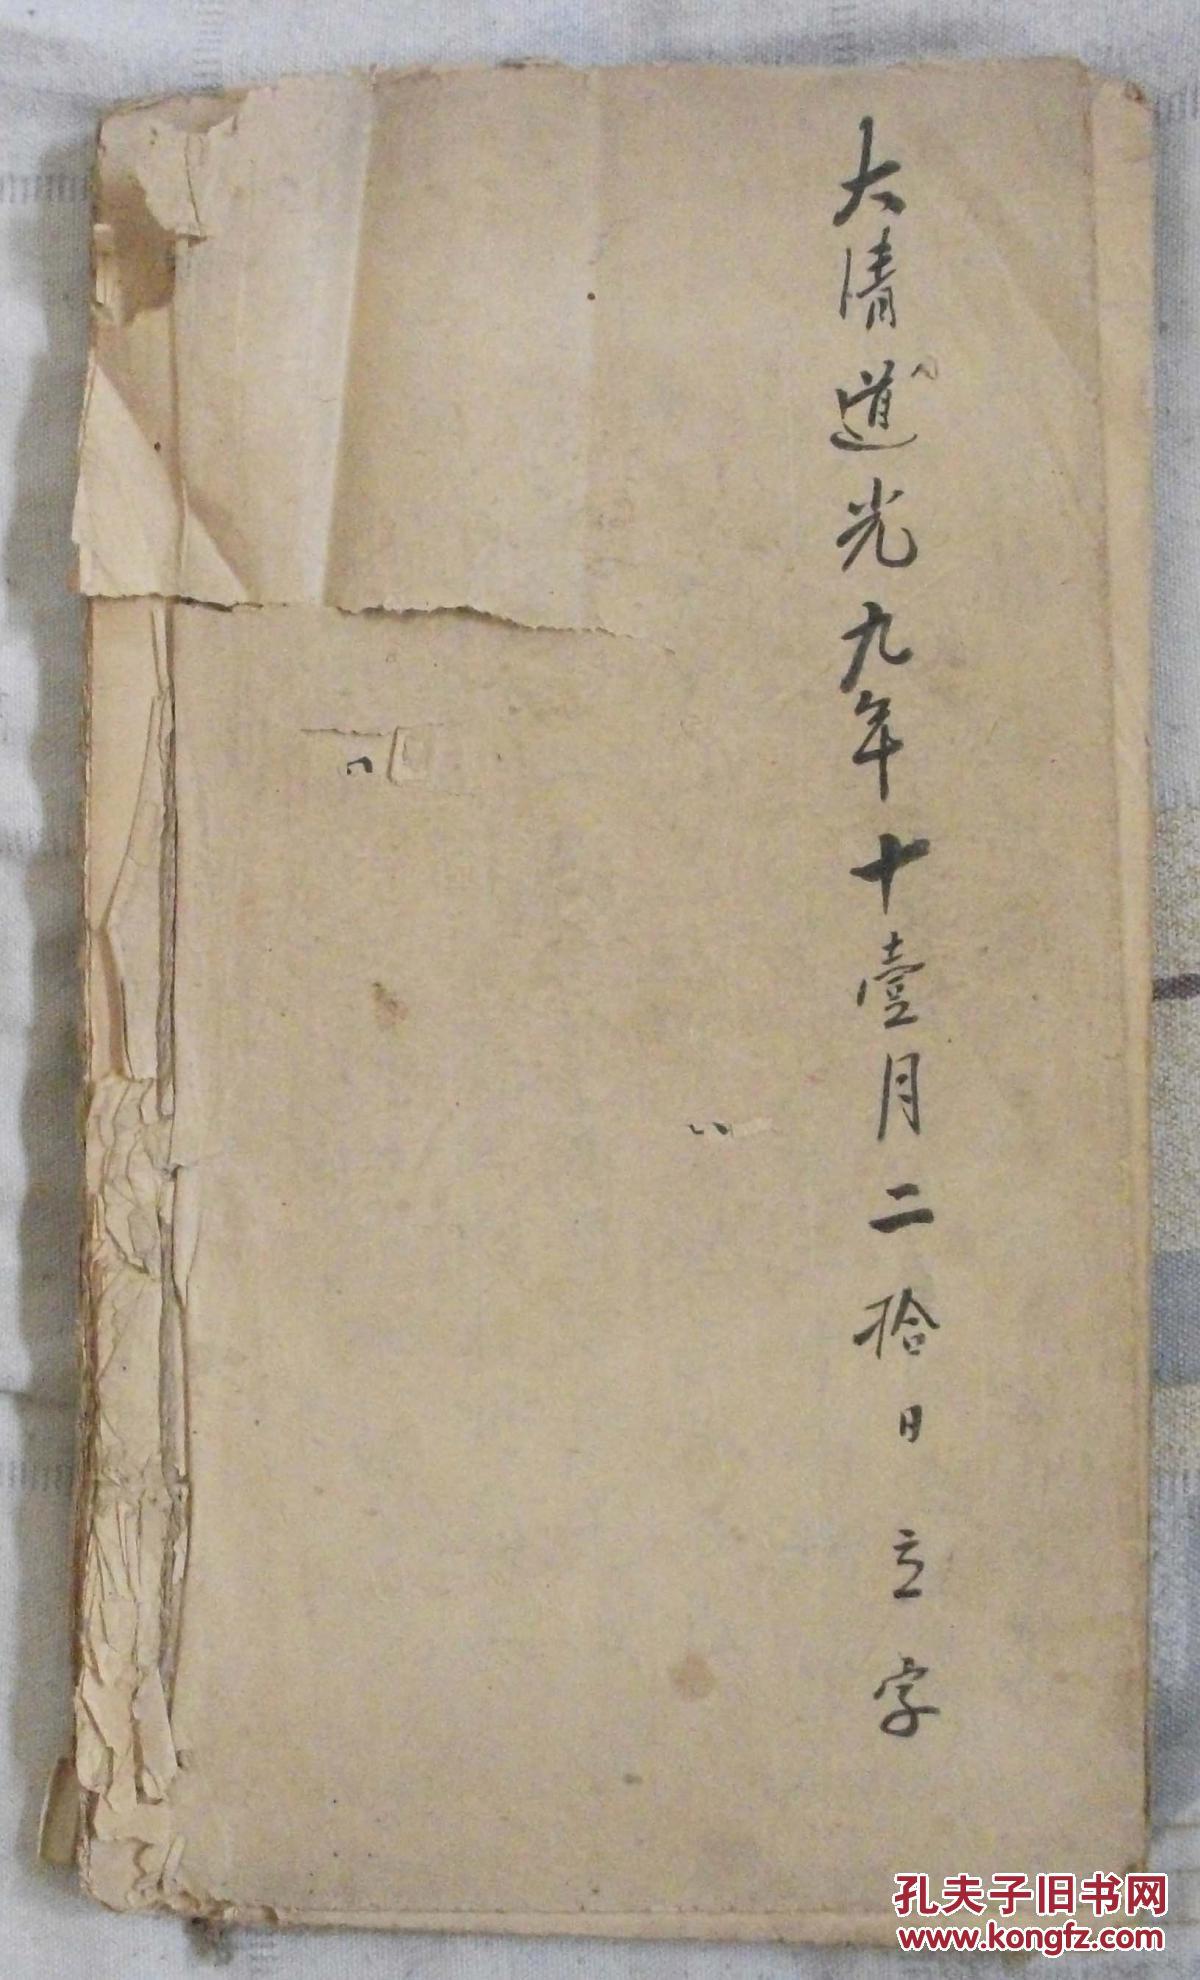 大清道光九年十壹月二拾日立字
孔夫子旧书网
www.kongfz.com